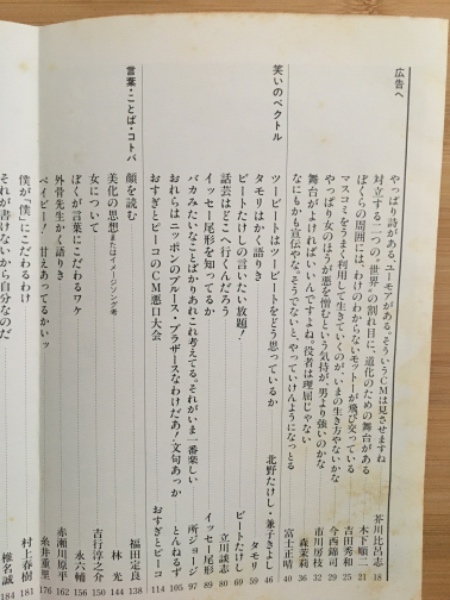 広告へ
やっぱり詩がある。ユーモアがある。そういうCMは見させますね 芥川比呂志 18
対立する二つの“世界”の割れ目に、道化のための舞台がある 木下順二 21
ぼくらの周囲には、わけのわからないモットーが飛び交っている 吉田秀和 25
マスコミをうまく利用して生きていくのが、いまの生き方やないかな 今西錦司 29
やっぱり女のほうが悪を憎むという気持が、男より強いのかな 市川房枝 32
舞台がよければいいんですよね。役者は理屈じゃない 森茉莉 36
なにもかも宣伝やな。そうでないと、やっていけんようになっとる 富士正晴 40
笑いのベクトル
ツービートはツービートをどう思っているか 北野たけし・兼子きよし 46
タモリはかく語りき タモリ 59
ビートたけしの言いたい放題! ビートたけし 69
話芸はどこへ行くんだろう 立川談志 80
イッセー尾形を知ってるか イッセー尾形 89
バカみたいなことばかりあれこれ考えてる。それがいま一番楽しい 所ジョージ 97
おれらはニッポンのブルース・ブラザースなわけだあ!文句あっか とんねるず 105
おすぎとピーコのCM悪口大会 おすぎとピーコ 114
言葉・ことば・コトバ
顔を読む 福田定良 138
美化の思想 またはイメージソング考 林光 144
女について 吉行淳之介 150
ぼくが言葉にこだわるワケ 永六輔 156
外骨先生かく語りき 赤瀬川原平 162
ベイビー! 甘えあってるかいッ 糸井重里 176
僕が「僕」にこだわるわけ 村上春樹 181
それが書けないから自分なのだ 椎名誠 184